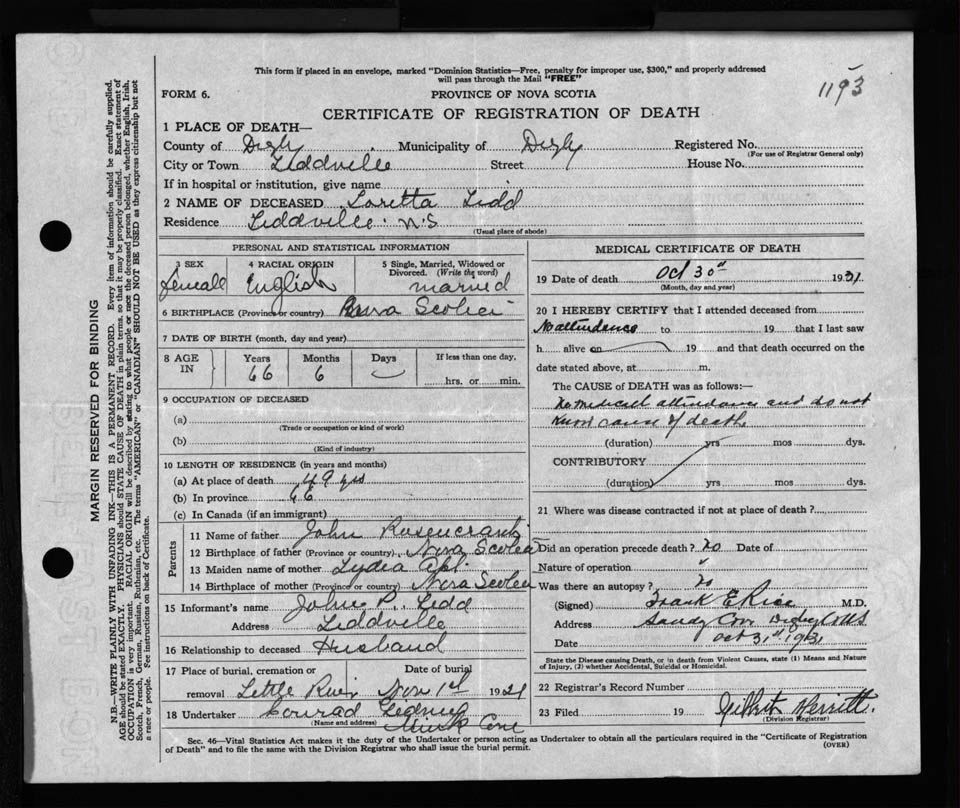 This form if placed in an envelope, marked "Dominion Statistics—Free, penalty for improper use, $300," and properly addressed
will pass through the Mail "FREE"
1193
FORM 6.
PROVINCE OF NOVA SCOTIA
CERTIFICATE OF REGISTRATION OF DEATH
1 PLACE OF DEATH—
County of Digby Municipality of Digby Registered No.
(For use of Registrar General only)
City or Town Tiddville Street House No.
If in hospital or institution, give name
2 NAME OF DECEASED Loretta Tidd
Residence Tiddville N.S
(Usual place of abode)
PERSONAL AND STATISTICAL INFORMATION
3 SEX 4 RACIAL ORIGIN 5 Single, Married, Widowed or Divorced. (Write the word)
Female English married
6 BIRTHPLACE (Province or country) Nova Scotia
7 DATE OF BIRTH (month, day and year)
8 AGE IN Years Months Days If less than one day,
66 6 hrs. or min.
9 OCCUPATION OF DECEASED
(a)
(Trade or occupation or kind of work)
(b)
(Kind of industry)
10 LENGTH OF RESIDENCE (in years and months)
(a) At place of death 49 yrs
(b) In province 66
(c) In Canada (if an immigrant)
Parents
11 Name of father John
12 Birthplace of father (Province or country) Nova Scotia
13 Maiden name of mother Lydia
14 Birthplace of mother (Province or country) Nova Scotia
15 Informant's name John P. Tidd
Address Tiddville
16 Relationship to deceased Husband
17 Place of burial, cremation or Date of burial
removal Little River Nov 1st 1931
18 Undertaker Conrad
(Name and address) Mink Cove
MEDICAL CERTIFICATE OF DEATH
19 Date of death Oct 30th 1931.
(Month, day and year)
20 I HEREBY CERTIFY that I attended deceased from
No attendance to 19 that I last saw
h alive on 19 and that death occurred on the
date stated above, at m.
The CAUSE OF DEATH was as follows:—
No medical attendance and do not
know cause of death
(duration) yrs mos dys.
CONTRIBUTORY
(duration) yrs mos dys.
21 Where was disease contracted if not at place of death?
Did an operation precede death? No Date of
Nature of operation "
Was there an autopsy? No
(Signed) Frank E Rice M.D.
Address Sandy Cove Digby Co NS
Date Oct 31st 1931
State the Disease causing Death, or in death from Violent Causes, state (1) Means and Nature
of Injury, (2) whether Accidental, Suicidal or Homicidal.
22 Registrar's Record Number
23 Filed 19 Merritt
(Division Registrar)
Sec. 46—Vital Statistics Act makes it the duty of the Undertaker or person acting as Undertaker to obtain all the particulars required in the "Certificate of Registration
of Death" and to file the same with the Division Registrar who shall issue the burial permit.
(OVER)
MARGIN RESERVED FOR BINDING
N.B.—WRITE PLAINLY WITH UNFADING INK—THIS IS A PERMANENT RECORD. Every item of information should be carefully supplied.
AGE should be stated EXACTLY. PHYSICIANS should STATE CAUSE OF DEATH in plain terms, so that it may be properly classified. Exact statement of
OCCUPATION is very important. RACIAL ORIGIN will be described by stating to what people or race the deceased person belonged, whether English, Irish,
Scotch, French, German, Russian, Ruthenian, etc. The terms "AMERICAN" or "CANADIAN" SHOULD NOT BE USED as they express citizenship but not
a race or people. See instructions on back of Certificate.